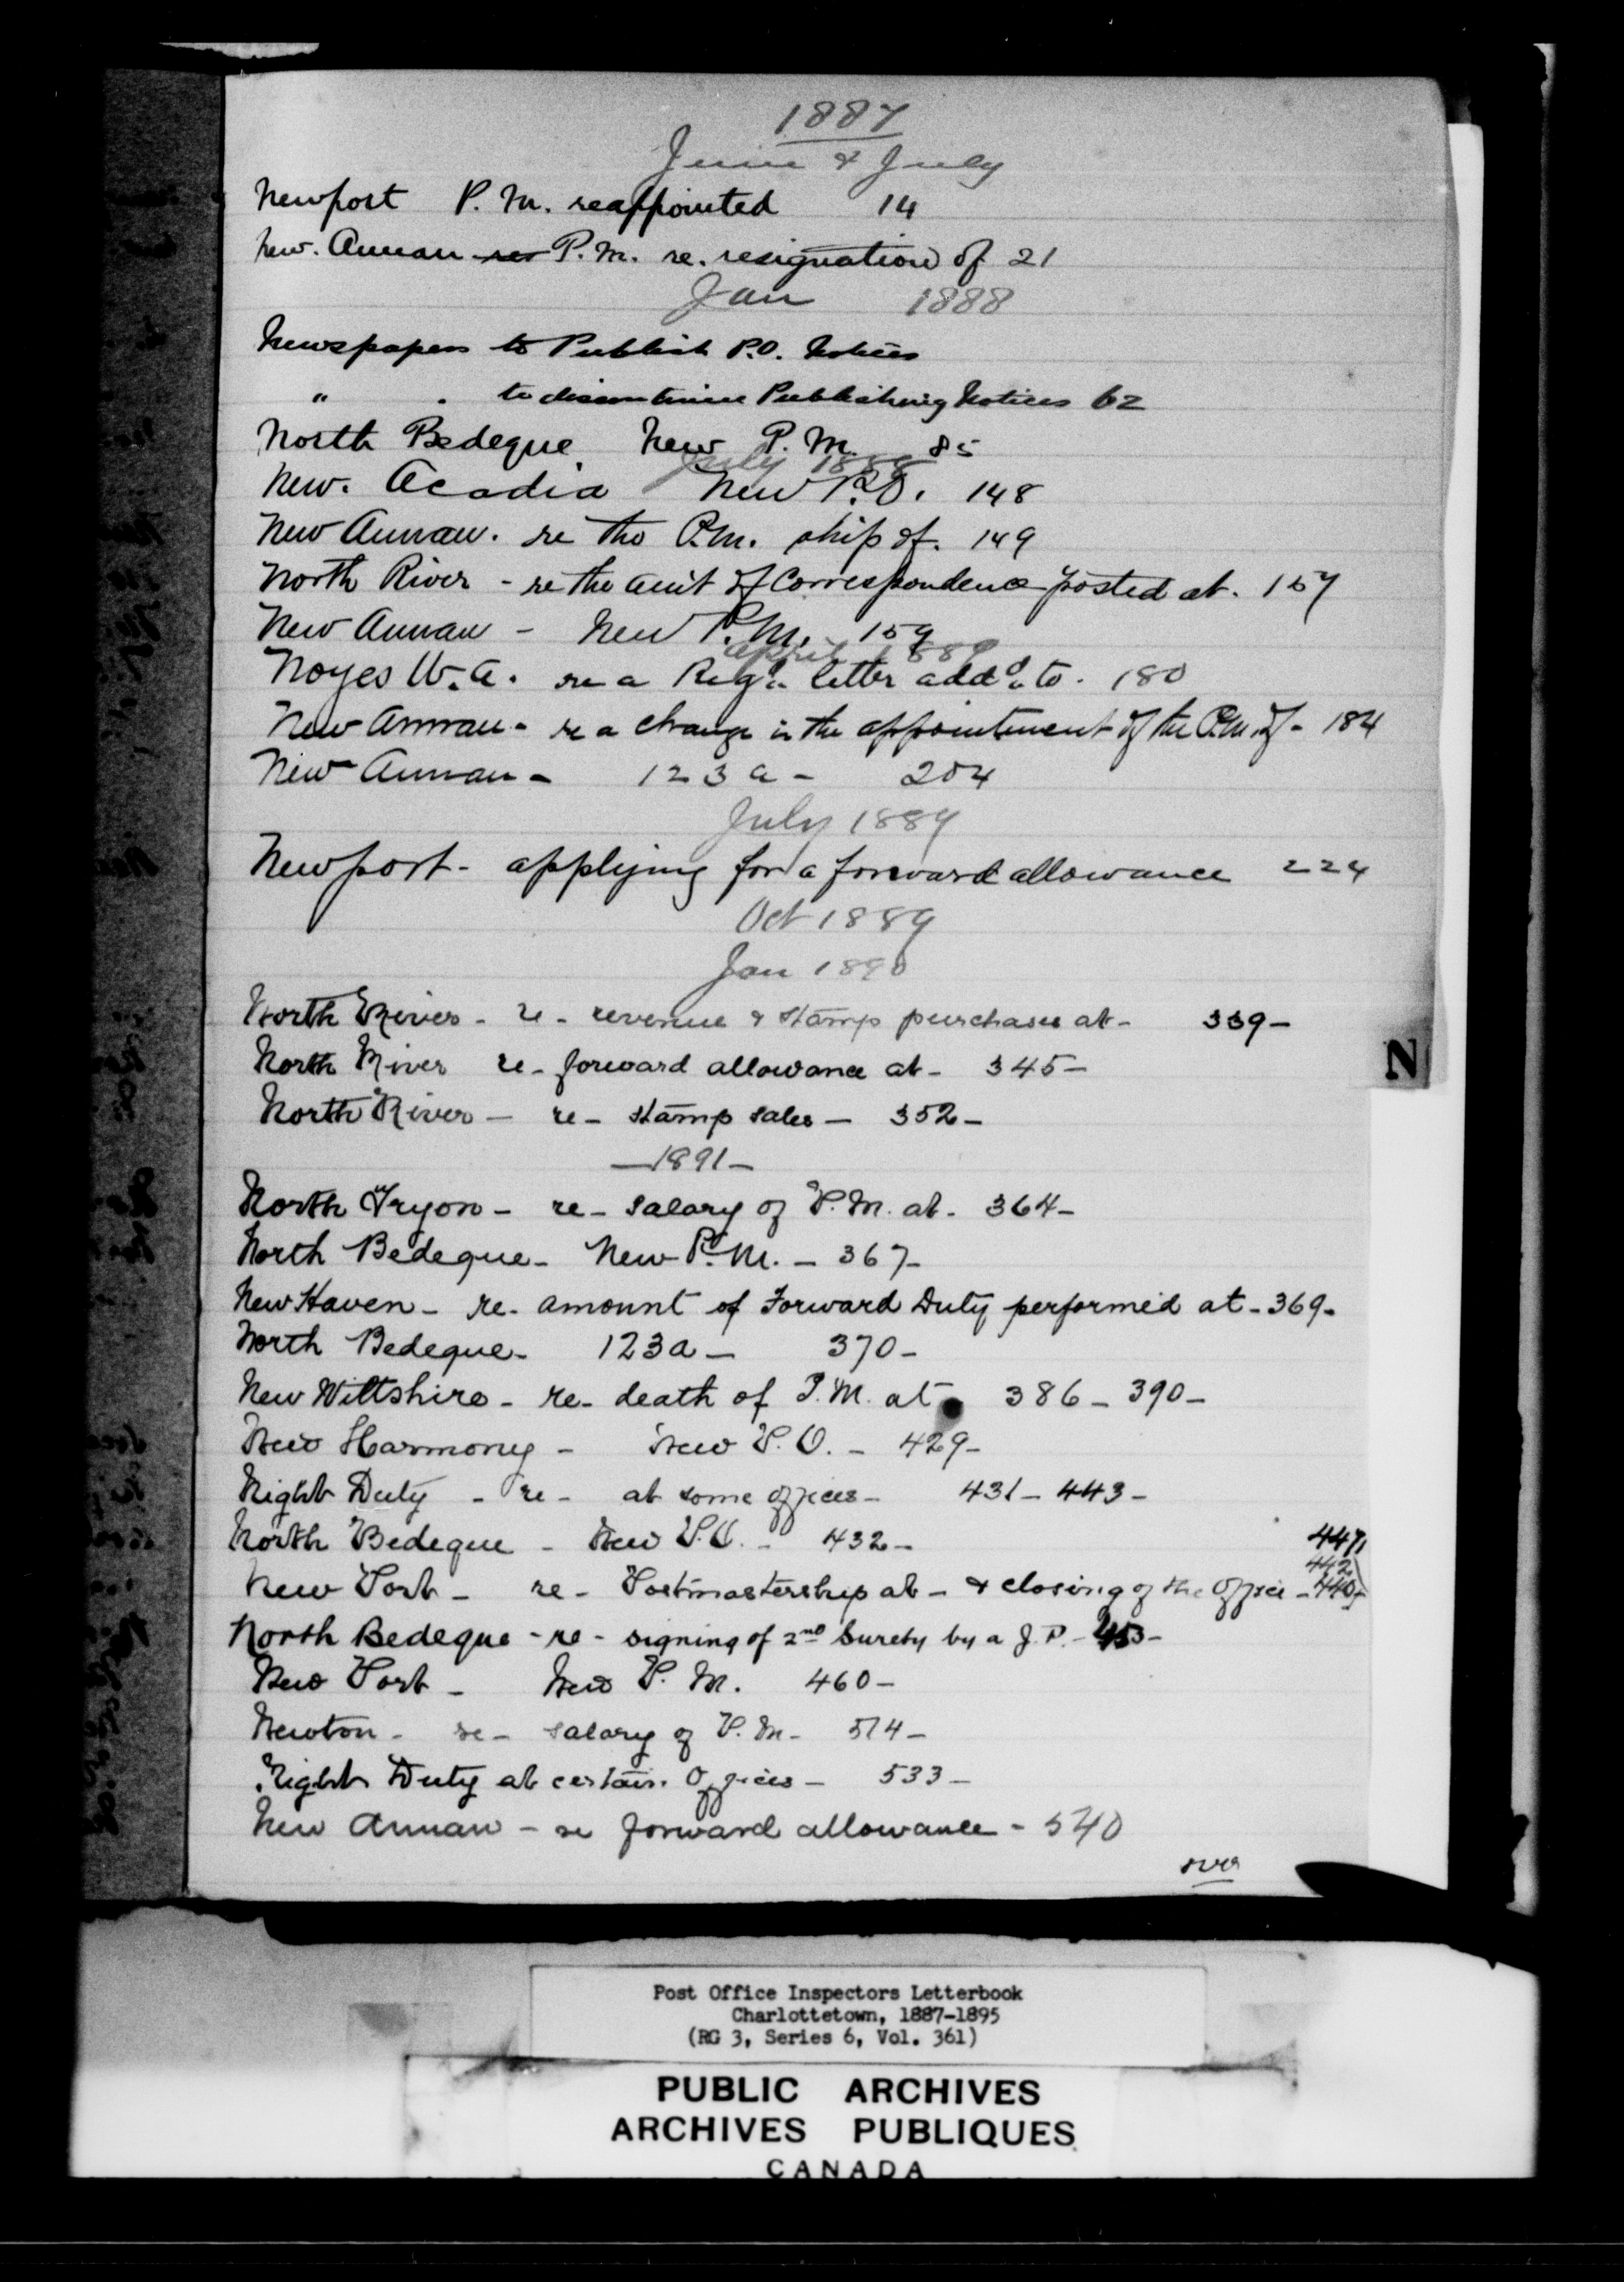 1887
June & July
Newport P. M. reappointed 14
New. Annan P.M. re. resignation of 21
Jan 1888
Newspapers to Publish P.O. Notices
" . to discontinue Publishing Notices 62
North Bedeque New P. M. 85
July 1888
New. Acadia New P.O. 148
New Annan. re the P.M. ship of. 149
North River - re the amt of Correspondence posted at. 157
New Annan - New P.M. 159
April 1889
Noyes W. A. re a Regd. letter addd. to. 180
New Annan - re a change in the appointment of the P.M. of - 184
New Annan - 123 a - 204
July 1889
Newport - applying for a forward allowance 224
Oct 1889
Jan 1890
North River - re - revenue & stamp purchases at - 339 -
North River re - forward allowance at - 345 -
North River - re - stamp sales - 352 -
- 1891 -
North Tryon - re - salary of P. M. at - 364 -
North Bedeque - New P. M. - 367 -
New Haven - re - amount of Forward Duty performed at - 369 -
North Bedeque - 123a - 370 -
New Wiltshire - re - death of P. M. at 386 - 390 -
New Harmony - New P. O. - 429 -
Night Duty - re - at some offices - 431 - 443 -
North Bedeque - New P.O. - 432 -
447,
442
New Port - re - Postmastership at - & closing of the Office - 440 -
North Bedeque - re - signing of 2nd Surety by a J. P. - 453 -
New Port - New P. M. 460 -
Newton - re - salary of P. M - 514 -
Night Duty at certain Offices - 533 -
New Annan - re forward allowance - 540
over
N
Post Office Inspectors Letterbook
Charlottetown, 1887-1895
(RG 3, Series 6, Vol. 361)
PUBLIC ARCHIVES
ARCHIVES PUBLIQUES
CANADA